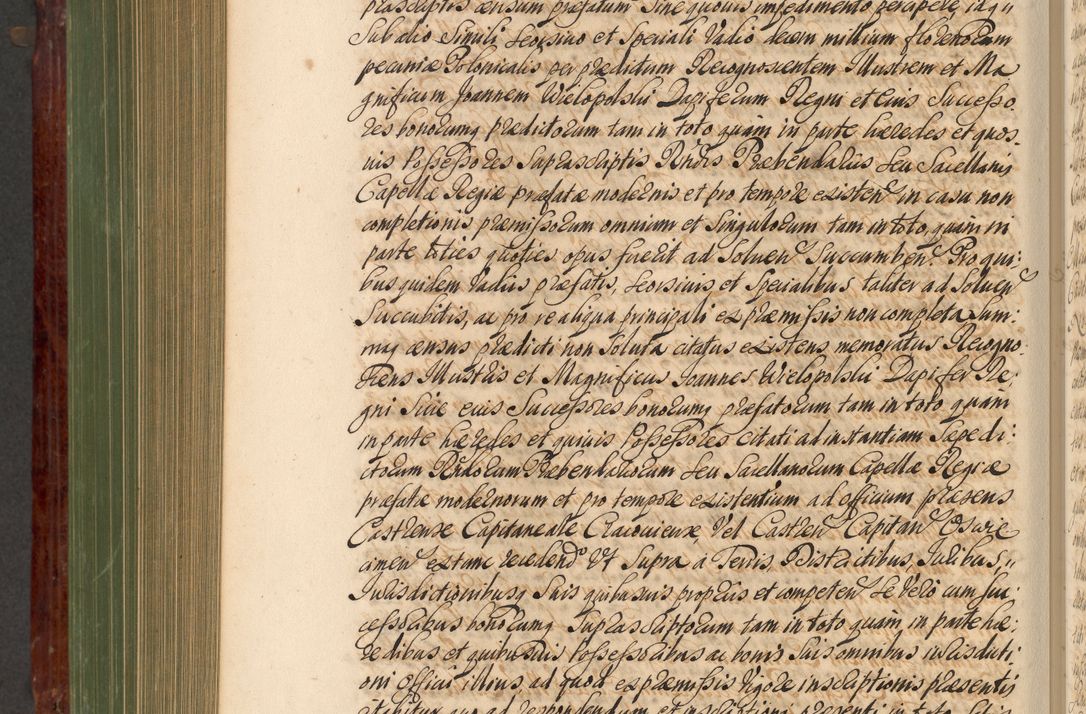 prascriptis censum præfatum Sine quovis impedimento percipere, idq;
Sub alio Simili Seorsivo et Speciali Vadio decem millium florenorum
pecuniæ Polonicalis per præditum Recognoscentem Illustrem et Ma
gnificum Joannem Wielopolski Dapiferum Regni et Eius Successo.
res bonorumq prædictorum tam in toto quam in parte hæredes et quos.
uis Possessores Suprascriptis Rndis Præbendariis Seu Sacellanis
Capellæ Regiæ præfatæ modernis et pro tempore existen in casu non
completionis præmissorum omnium et Singulorum tam in toto, quam in
parte toties quoties opus fuerit ad Soluen Succumben. Pro qui:
bus quidem Vadiis præfatis, Seorsivis et Specialibus taliter ad Soluen
Succubitis, ac pro re aliqua principali ex præmissis non completa Sum:
maq census prædicti non Soluta citatus existens memoratus Recogno:
scens Illustris et Magnificus Joannes Wielopolski Dapifer Re:
gni Siue euis Successores bonorumq præfatorum tam in toto quam
in parte hæredes et quiuis Possessores citati ad instantiam Sæpedi:
ctorum Rndorum Præbendariorum Seu Sacellanorum Capellæ Regiæ
præfatæ modernorum et pro tempore existentium ad officium præsens
Castrense Capitaneale Cracouiense Vel Castren Capitan Oswie
cimen extunc recedendo Vt Supra a Terris Districtibus, Iuribus, "
Iurisdictionibusq Suis quibusuis propriis et competen Se Vero cum suc:
cessoribus bonorumq Suprascriptorum tam in toto quam in parte hæ:
redibus et quibusuis Possessoribus ac bonis Suis omnibus iurisdicti:
oni Officii illius, ad quod ex præmissis Vigore inscriptionis præsentis